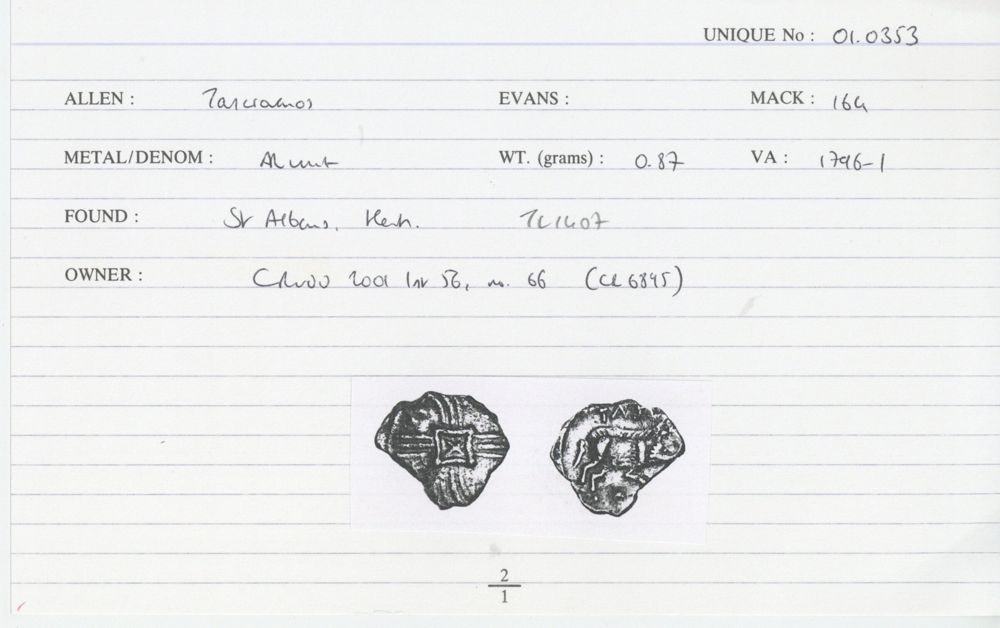 UNIQUE No : 01.0353
ALLEN : Tasciovanos EVANS : MACK : 164
METAL/DENOM : AR unit WT. (grams) : 0.87 VA : 1796-1
FOUND : St Albans, Herts. TL1407
OWNER : CR 2001 Inv 56, no. 66 (CR 6845)
TAS
2
1